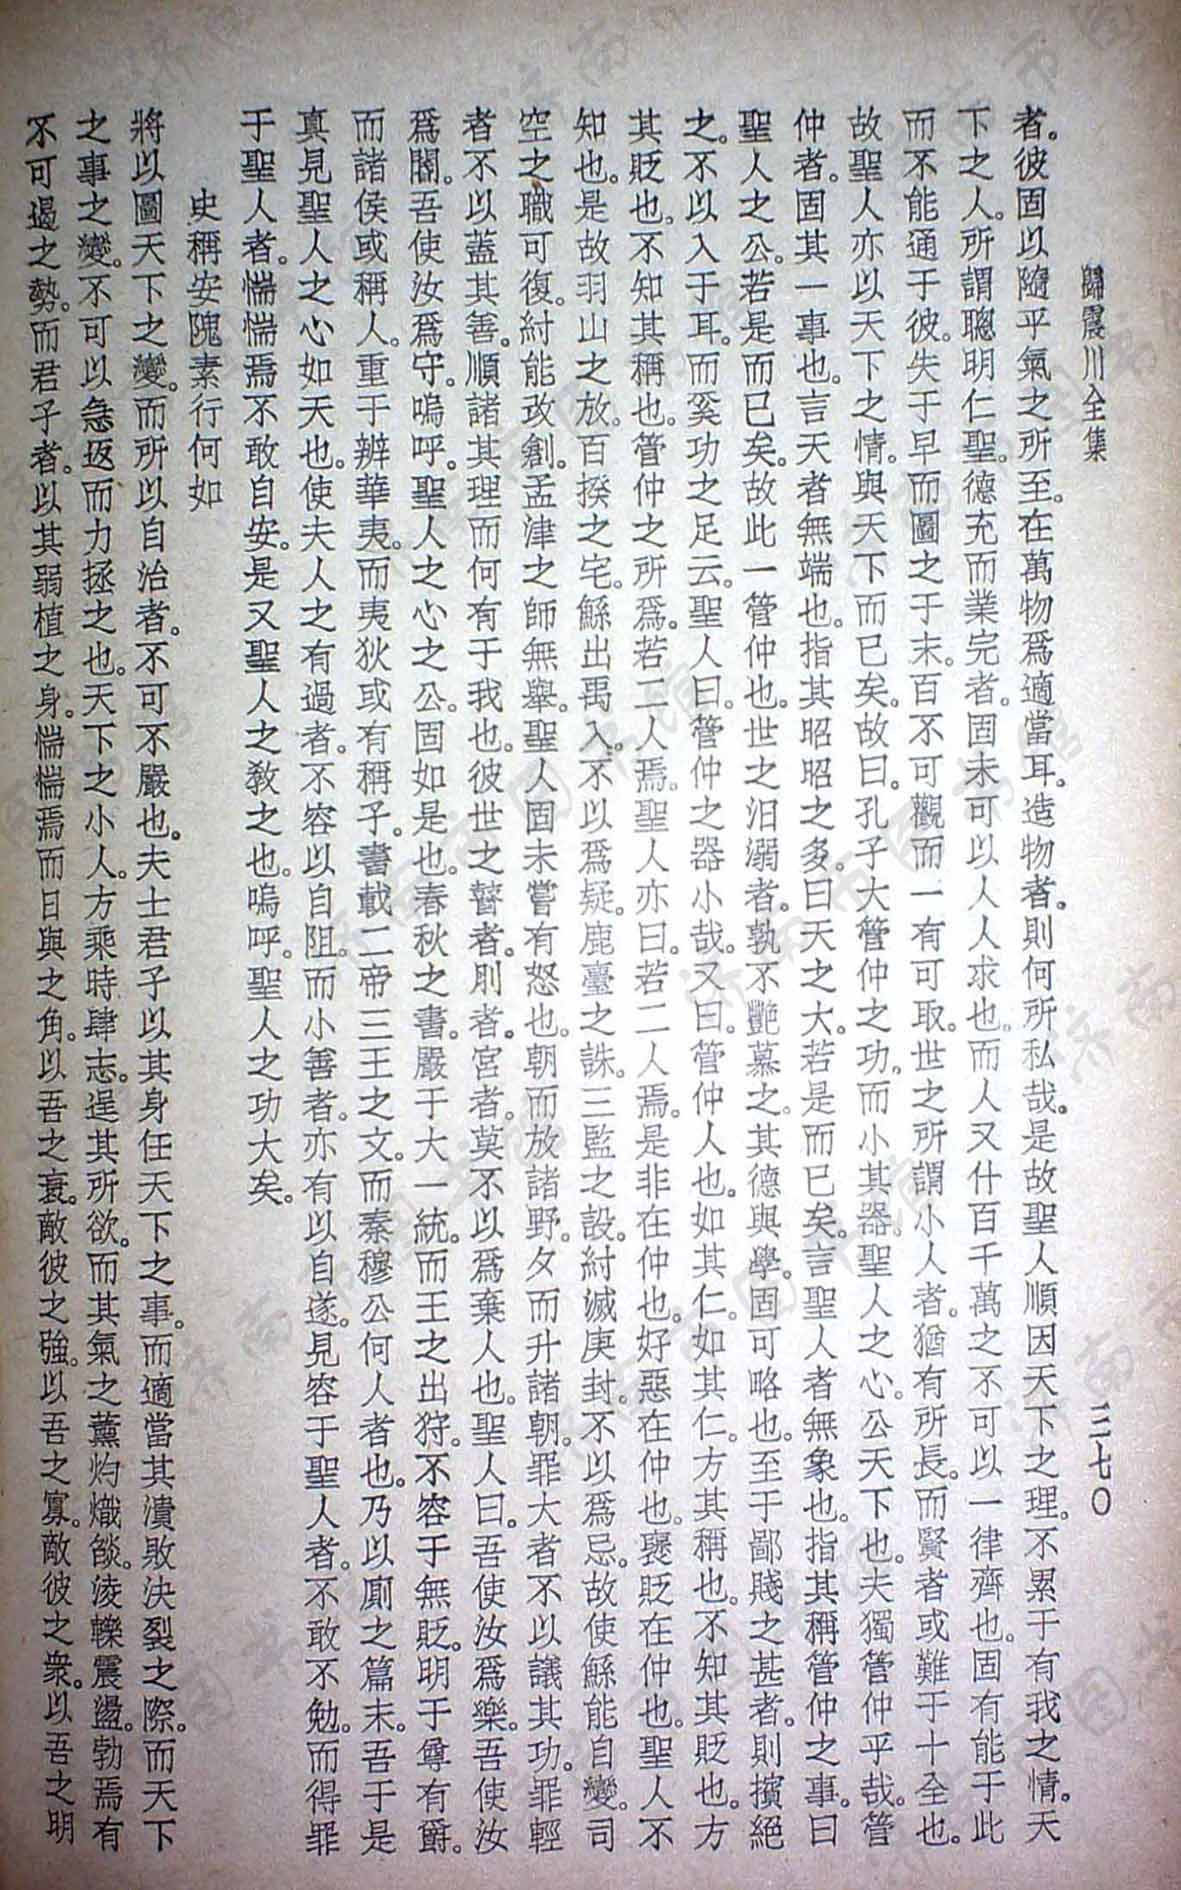 歸震川全集
三七〇
者。彼固以隨平氣之所至。在萬物爲適當耳。造物者。則何所私哉。是故聖人順因天下之理。不累于有我之情。天
下之人。所謂聰明仁聖。德充而業完者。固未可以人人求也。而人又什百千萬之不可以一律齊也。固有能于此
而不能通于彼。失于早而圖之于末。百不可觀而一有可取。世之所謂小人者。猶有所長。而賢者或難于十全也。
故聖人亦以天下之情。與天下而已矣。故曰。孔子大管仲之功。而小其器。聖人之心。公天下也。夫獨管仲乎哉。管
仲者。固其一事也。言天者無端也。指其昭昭之多。曰天之大。若是而已矣。言聖人者無象也。指其稱管仲之事。曰
聖人之公。若是而已矣。故此一管仲也。世之汨溺者。孰不艷慕之。其德與學。固可略也。至于鄙賤之甚者。則擯絕
之。不以入于耳。而奚功之足云。聖人曰。管仲之器小哉。又曰。管仲人也。如其仁。如其仁。方其稱也。不知其貶也。方
其貶也。不知其稱也。管仲之所爲。若二人焉。聖人亦曰。若二人焉。是非在仲也。好惡在仲也。褒貶在仲也。聖人不
知也。是故羽山之放。百揆之宅。鯀出禹入。不以爲疑。鹿臺之誅。三監之設。紂滅庚封。不以爲忌。故使鯀能自變。司
空之職可復。紂能改創。孟津之師無舉。聖人固未嘗有怒也。朝而放諸野。夕而升諸朝。罪大者不以議其功。罪輕
者不以蓋其善。順諸其理而何有于我也。彼世之瞽者。刖者。宮者。莫不以爲棄人也。聖人曰。吾使汝爲樂。吾使汝
爲閽。吾使汝爲守。嗚呼。聖人之心之公。固如是也。春秋之書。嚴于大一統。而王之出狩。不容于無貶。明于尊有爵。
而諸侯或稱人。重于辨華夷。而夷狄或有稱子。書載二帝三王之文。而秦穆公何人者也。乃以廁之篇末。吾于是
真見聖人之心如天也。使夫人之有過者。不容以自阻。而小善者。亦有以自遂。見容于聖人者。不敢不勉。而得罪
于聖人者。惴惴焉不敢自安。是又聖人之敎之也。嗚呼。聖人之功大矣。
史稱安隗素行何如
將以圖天下之變。而所以自治者。不可不嚴也。夫士君子以其身任天下之事。而適當其潰敗決裂之際。而天下
之事之變。不可以急返而力拯之也。天下之小人。方乘時肆志。逞其所欲。而其氣之薰灼熾燄。淩轢震盪。勃焉有
不可遏之勢。而君子者。以其弱植之身。惴惴焉而日與之角。以吾之衰。敵彼之強。以吾之寡。敵彼之衆。以吾之明